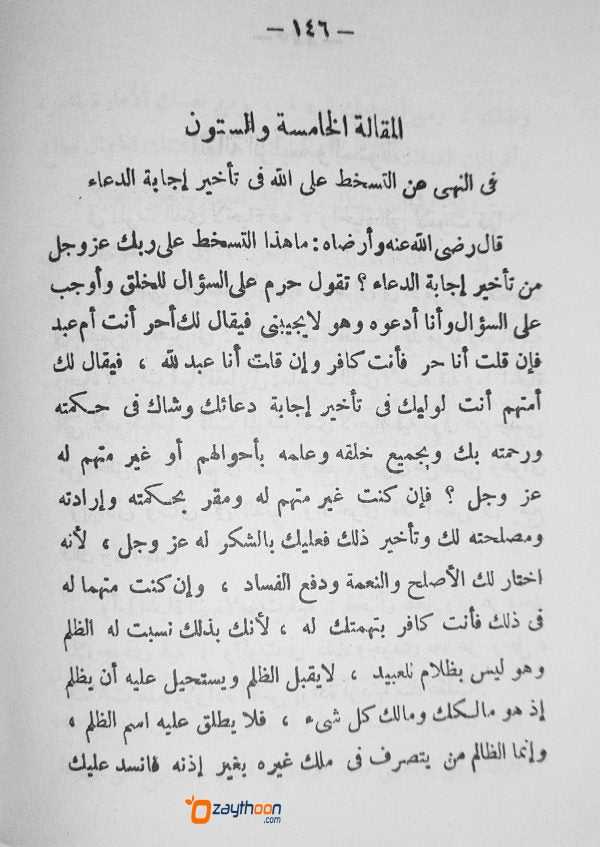 — ١٤٦ —
المقالة الخامسة والستون
فى النهى عن التسخط على الله فى تأخير إجابة الدعاء
قال رضى الله عنه وأرضاه : ما هذا التسخط على ربك عز وجل
من تأخير إجابة الدعاء ؟ تقول حرم على السؤال للخلق وأوجب
على السؤال وأنا أدعوه وهو لا يجيبنى فيقال لك أحر أنت أم عبد
فإن قلت أنا حر فأنت كافر وإن قلت أنا عبد لله ، فيقال لك
أمتهم أنت لوليك فى تأخير إجابة دعائك وشاك فى حكمته
ورحمته بك وبجميع خلقه وعلمه بأحوالهم أو غير متهم له
عز وجل ؟ فإن كنت غير متهم له ومقر بحكمته وإرادته
ومصلحته لك وتأخير ذلك فعليك بالشكر له عز وجل ، لأنه
اختار لك الأصلح والنعمة ودفع الفساد ، وإن كنت متهما له
فى ذلك فأنت كافر بتهمتك له ، لأنك بذلك نسبت له الظلم
وهو ليس بظلام للعبيد ، لا يقبل الظلم ويستحيل عليه أن يظلم
إذ هو مالكك ومالك كل شىء ، فلا يطلق عليه اسم الظلم ،
وإنما الظالم من يتصرف فى ملك غيره بغير إذنه فانسد عليك
zaythoon
.com